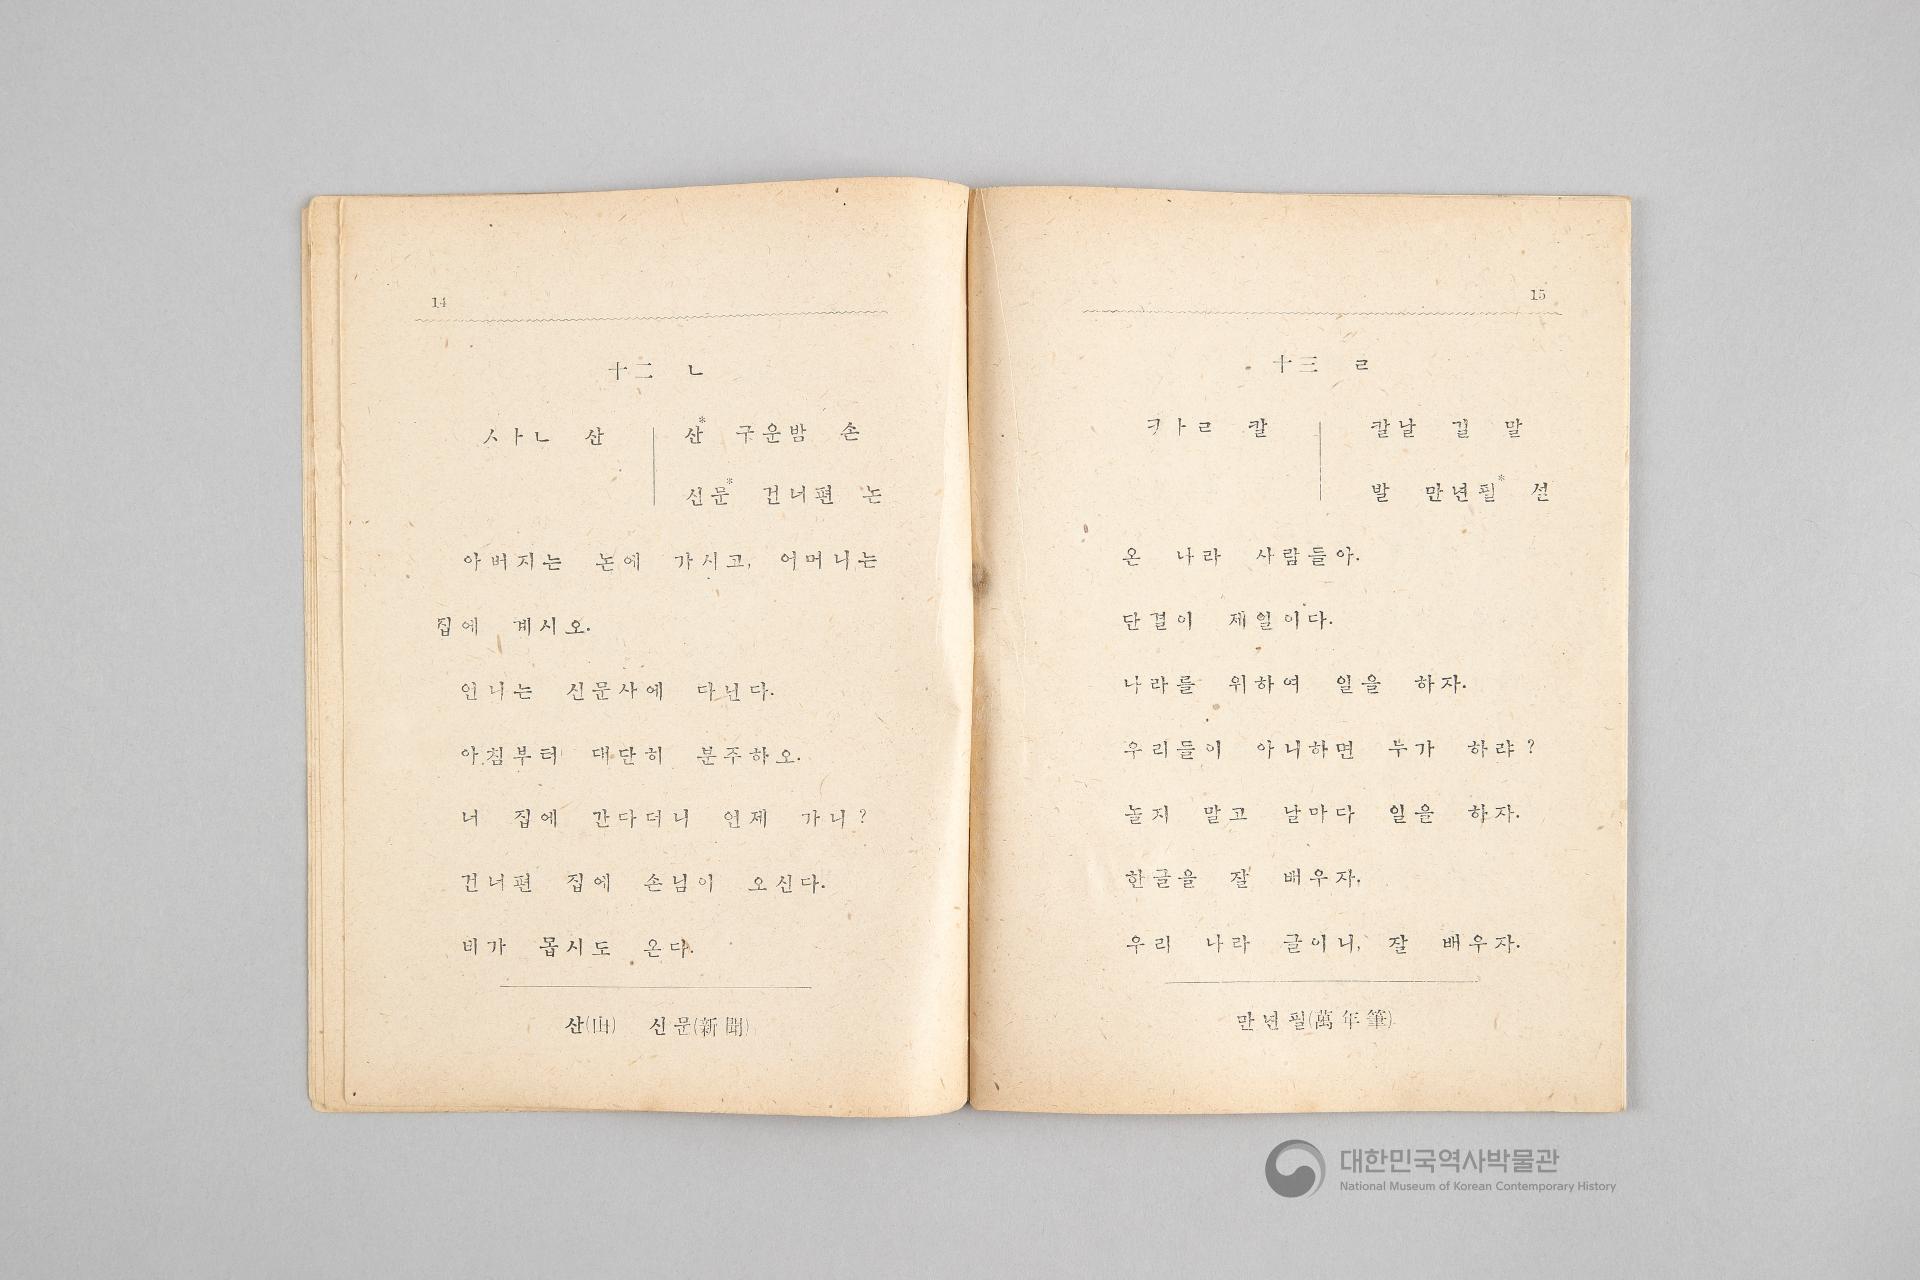 14
十二 ㄴ
ㅅㅏㄴ 산 산* 구운밤 손
신문* 건너편 논
아버지는 논에 가시고, 어머니는
집에 계시오.
언니는 신문사에 다닌다.
아침부터 대단히 분주하오.
너 집에 간다더니 언제 가니?
건너편 집에 손님이 오신다.
비가 몹시도 온다.
산(山) 신문(新聞)
15
十三 ㄹ
ㅋㅏㄹ 칼 칼날 길 말
발 만년필* 설
온 나라 사람들아.
단결이 제일이다.
나라를 위하여 일을 하자.
우리들이 아니하면 누가 하랴?
놀지 말고 날마다 일을 하자.
한글을 잘 배우자.
우리 나라 글이니, 잘 배우자.
만년필(萬年筆)
대한민국역사박물관
National Museum of Korean Contemporary History